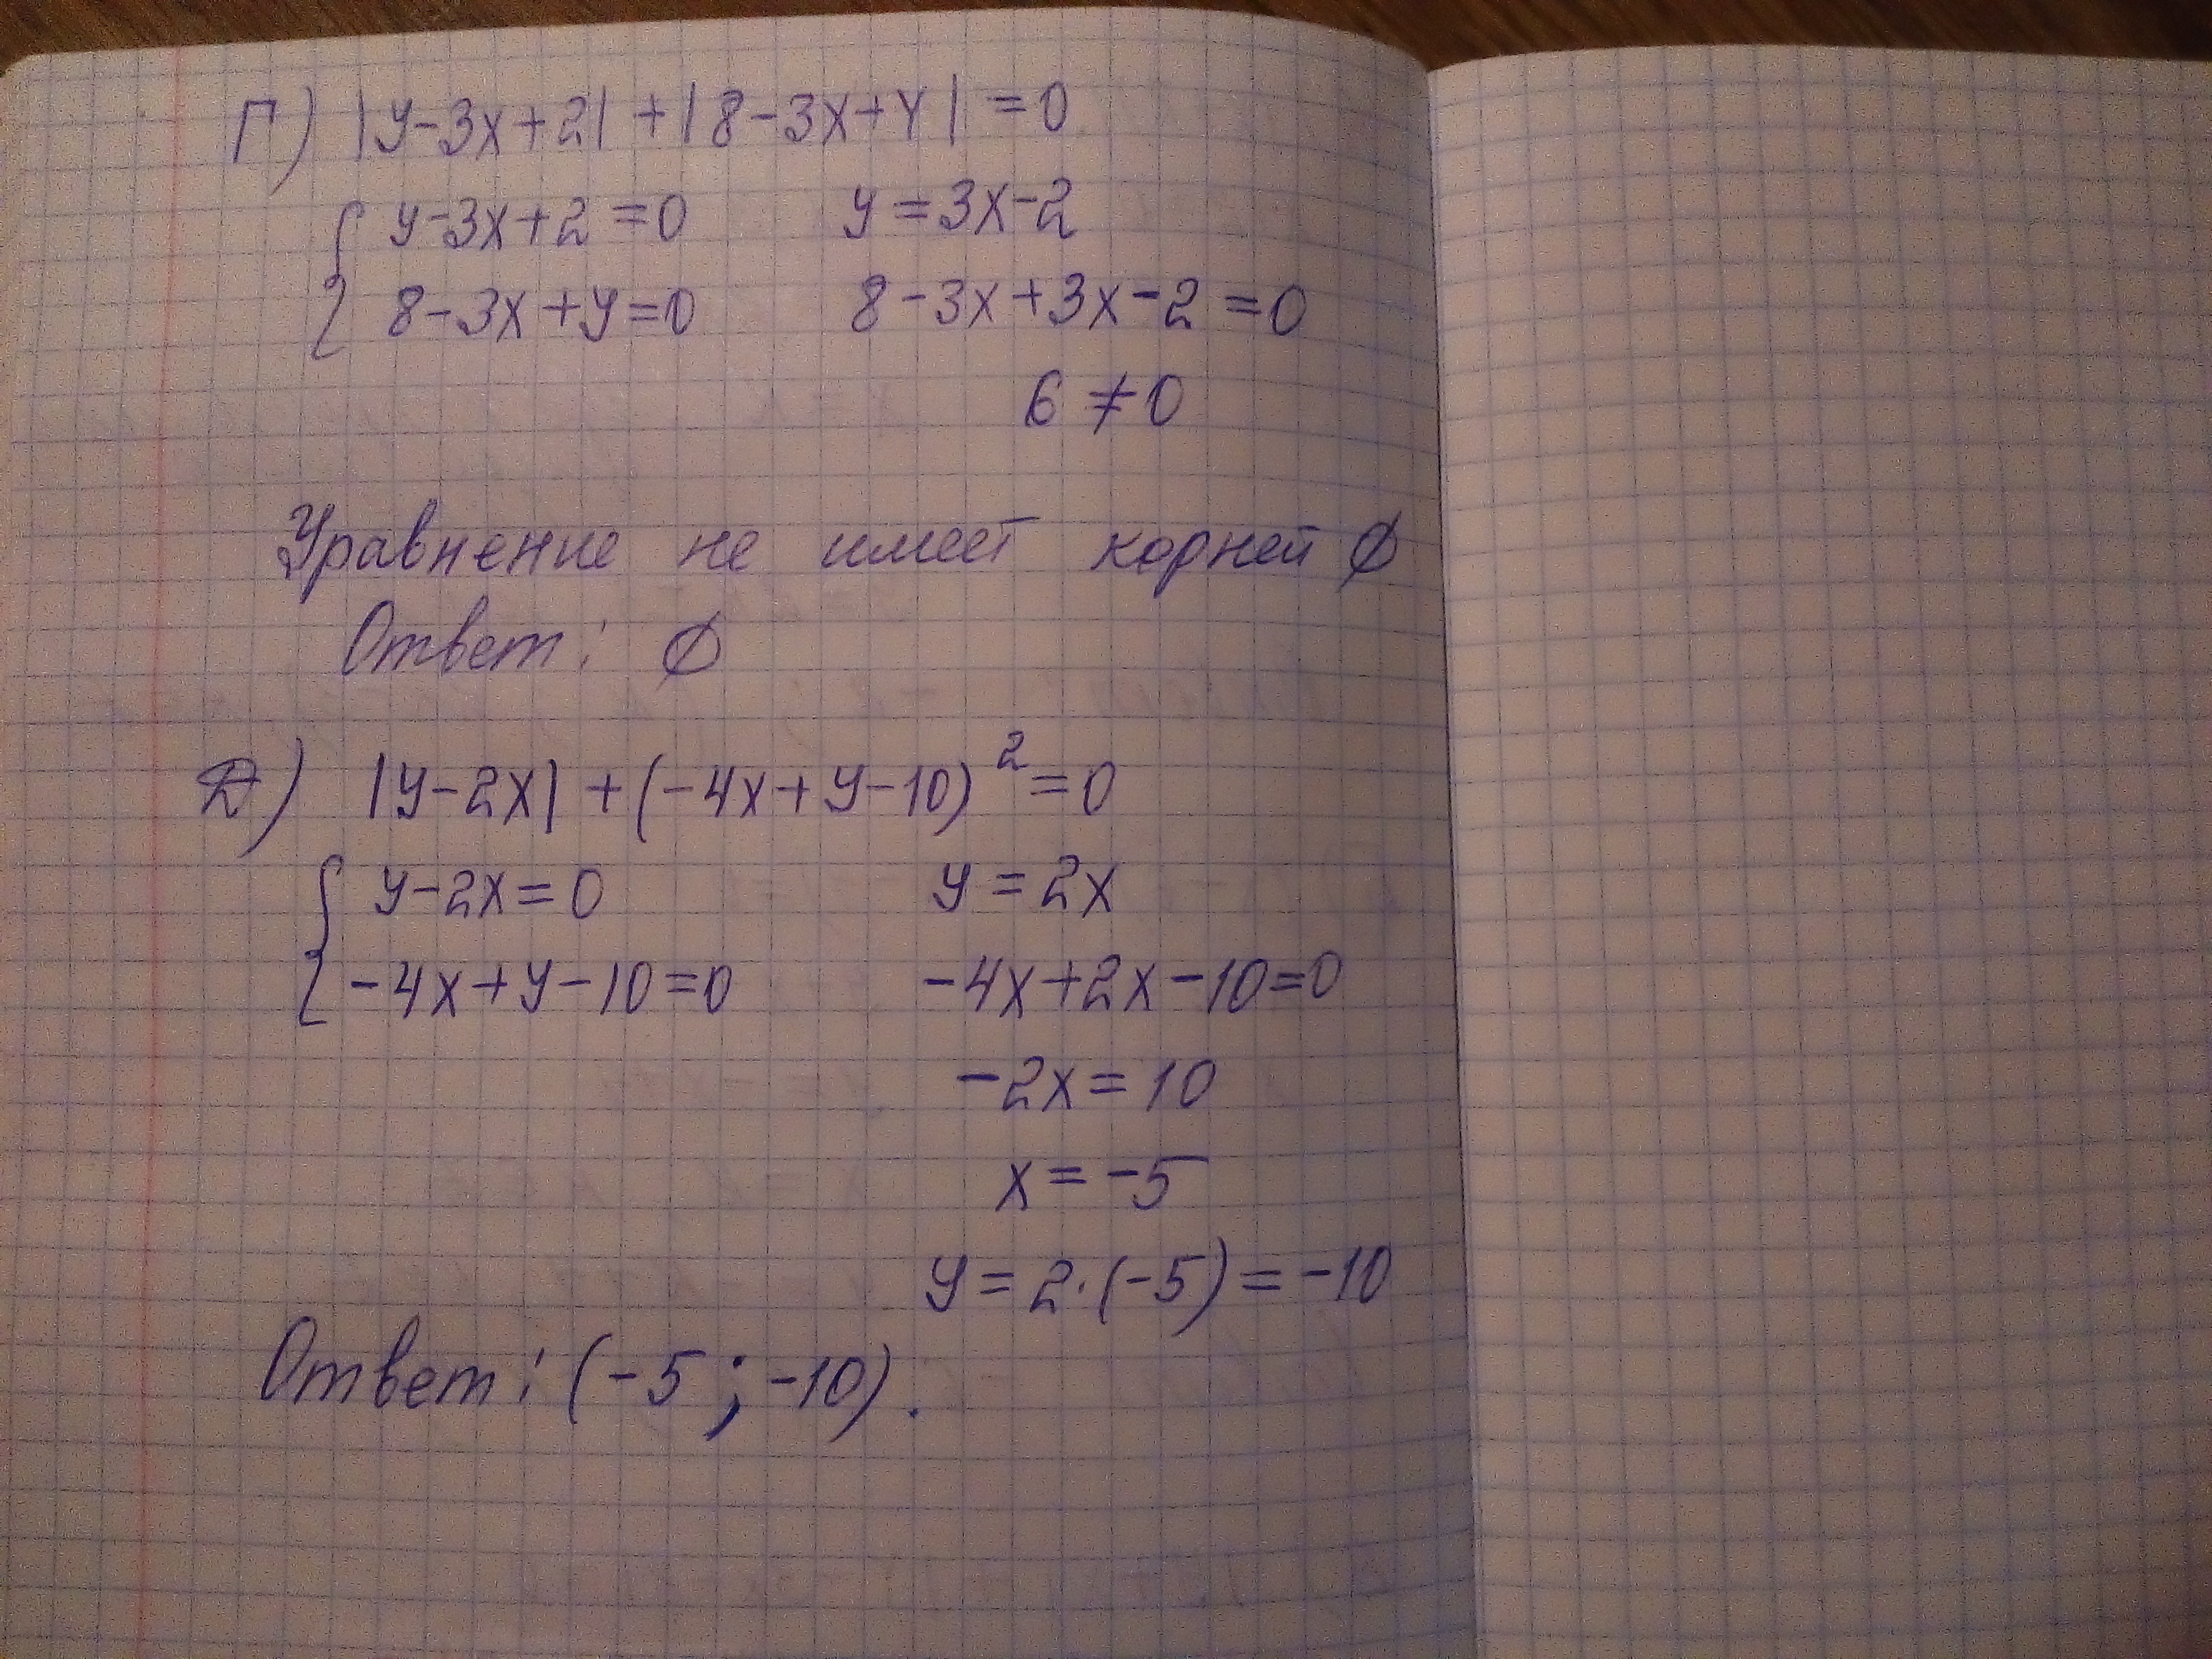 Г) |y-3x+2| + |8-3x+y| = 0
{ y-3x+2=0 y=3x-2
8-3x+y=0 8-3x+3x-2=0
6≠0
Уравнение не имеет корней ∅
Ответ: ∅
Д) |y-2x| + (-4x+y-10)²=0
{ y-2x=0 y=2x
-4x+y-10=0 -4x+2x-10=0
-2x=10
x=-5
y=2·(-5)=-10
Ответ: (-5; -10).